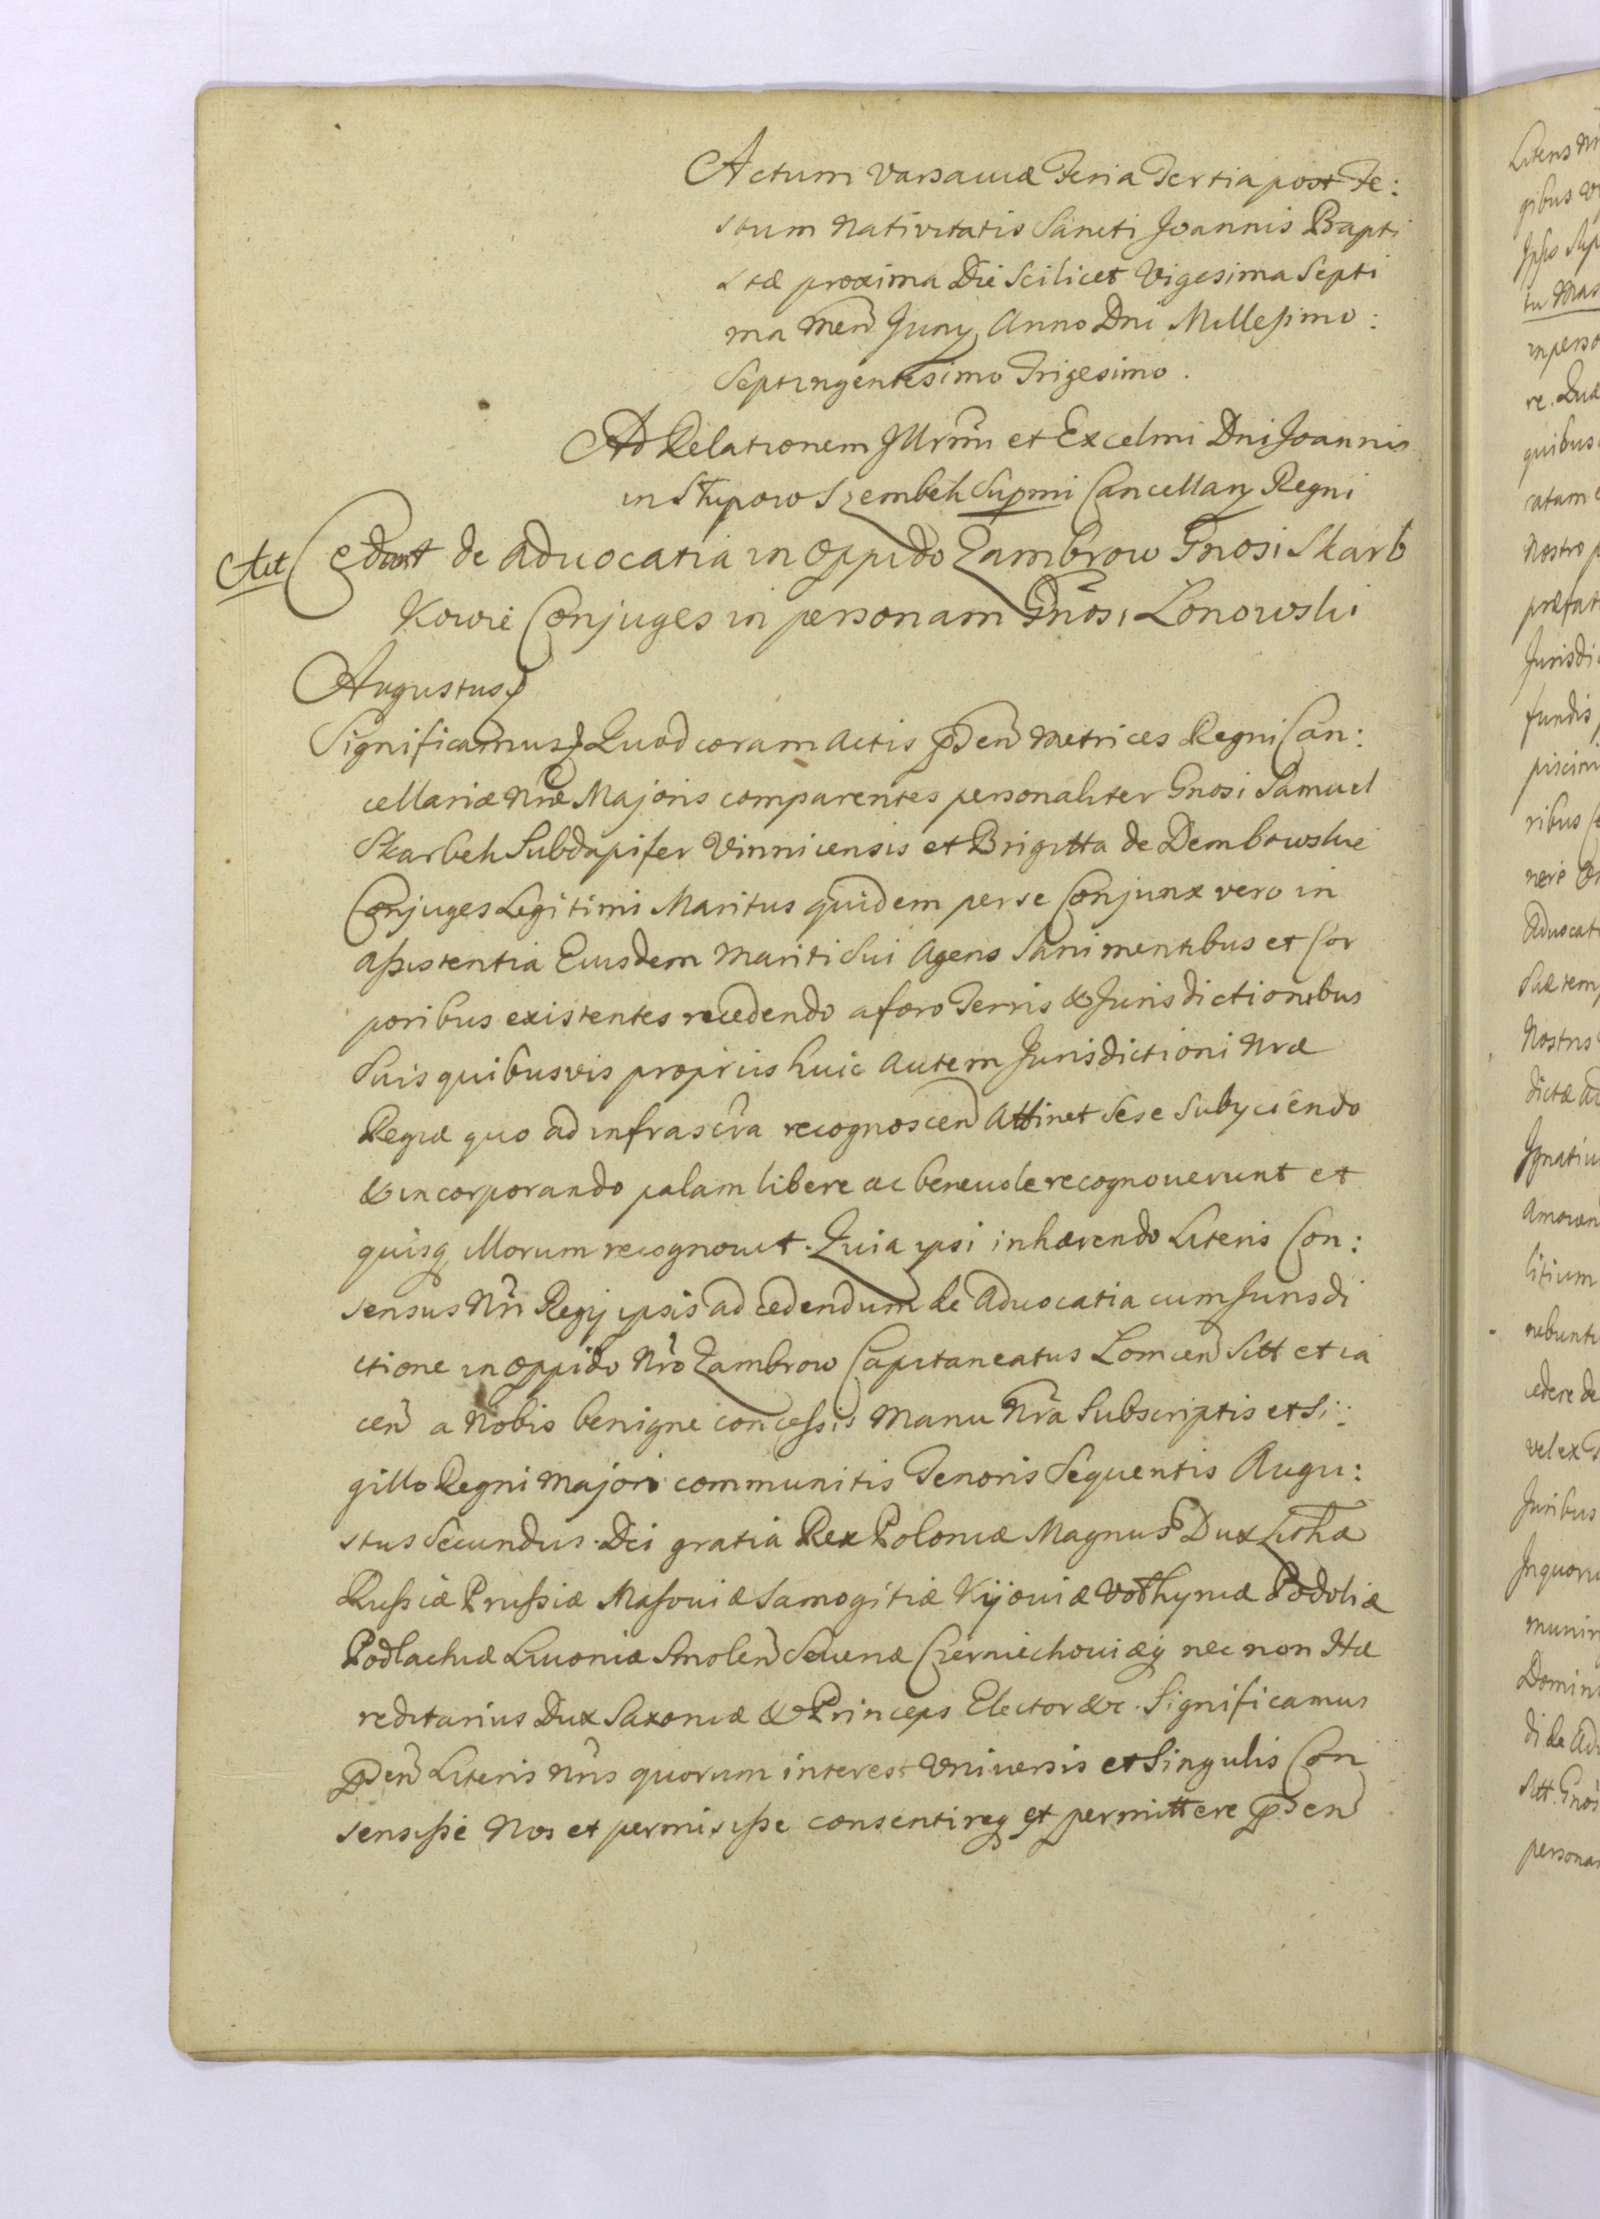 Actum Varsaviæ Feria Tertia post Fe:
stum Nativitatis Sancti Joannis Bapti
stæ proxima Die Scilicet Vigesima Septi
ma Men Juny Anno Dni Millesimo:
Septingentesimo Trigesimo.
Ad Relationem Illrmi et Excelmi Dni Joannis
in Słupow Szembek Supmi Cancellary Regni
Act Cedunt de Advocatia in Oppido Zambrow Gnosi Skarb
Kowie Conjuges in personam Gnosi Lonowski
Augustus
Significamus Quod coram Actis Pden Metrices Regni Can:
cellariæ Nræ Majoris comparentes personaliter Gnosi Samuel
Skarbek Subdapifer Vinnicensis et Brigitta de Dembowskie
Conjuges Legitimi Maritus quidem per se Conjunx vero in
Assistentia Eiusdem Mariti Sui Agens Sani mentibus et Cor
poribus existentes recedendo a foro Terris & Jurisdictionibus
Suis quibusvis propriis huic Autem Jurisdictioni Nræ
Regiæ quo ad infrascra recognoscen Attinet Sese Subyciendo
& incorporando palam libere ac benevole recognoverunt et
quisq illorum recognovit. Quia ipsi inhærendo Literis Con:
sensus Nri Regij ipsis ad cedendum de Advocatia cum Jurisdi
ctione in Oppido Nro Zambrow Capitaneatus Lomcen Sitt et ia
cen a Nobis benigne concessis Manu Nra Subscriptis et Si:
gillo Regni Majori communitis Tenoris Sequentis Augu:
stus Secundus Dei gratia Rex Poloniæ Magnus Dux Lithæ
Russiæ Prussiæ Masoviæ Samogitiæ Kijoviæ Volhyniæ Podoliæ
Podlachiæ Livoniæ Smolen Severiæ Czerniechoviæq nec non Hæ
reditarius Dux Saxoniæ & Princeps Elector &c. Significamus
Pden Literis Nris quorum interest Universis et Singulis Con
sensisse Nos et permisisse consentireq et permittere Pden